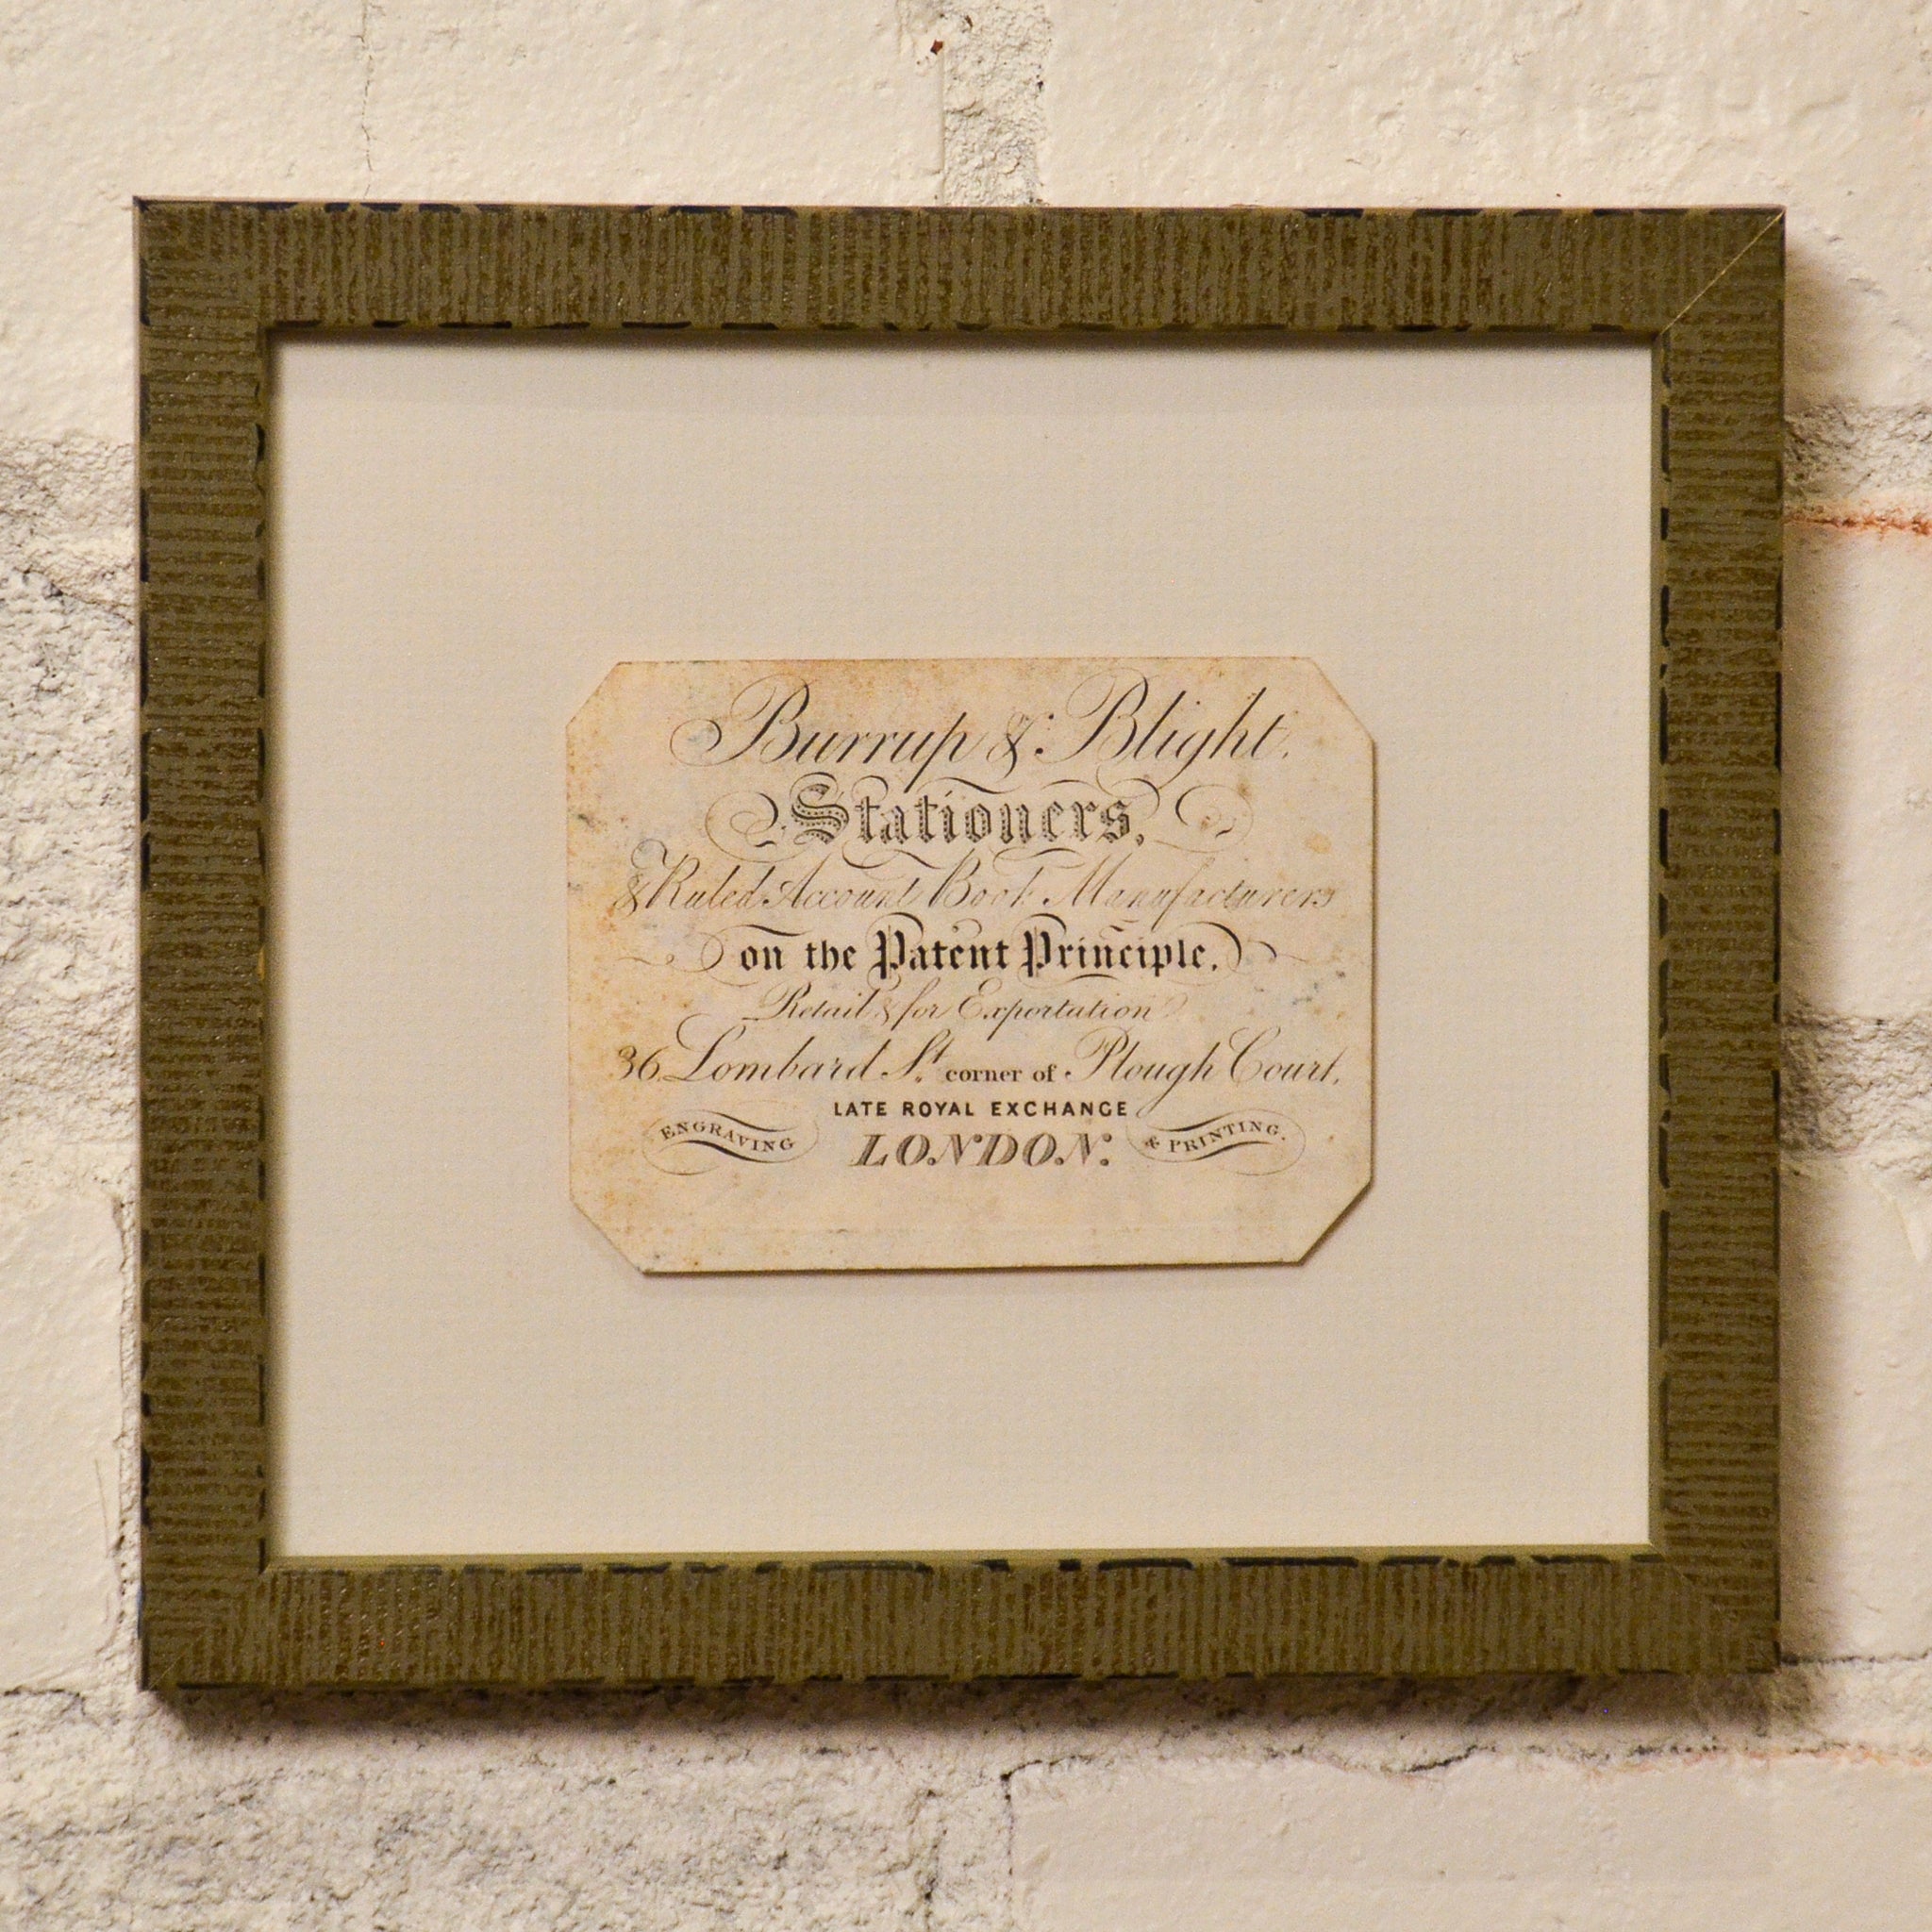 Burrup & Blight.
Stationers,
& Ruled Account Book Manufacturers
on the Patent Principle.
Retail & for Exportation
36 Lombard St. corner of Plough Court,
LATE ROYAL EXCHANGE
ENGRAVING LONDON. & PRINTING.